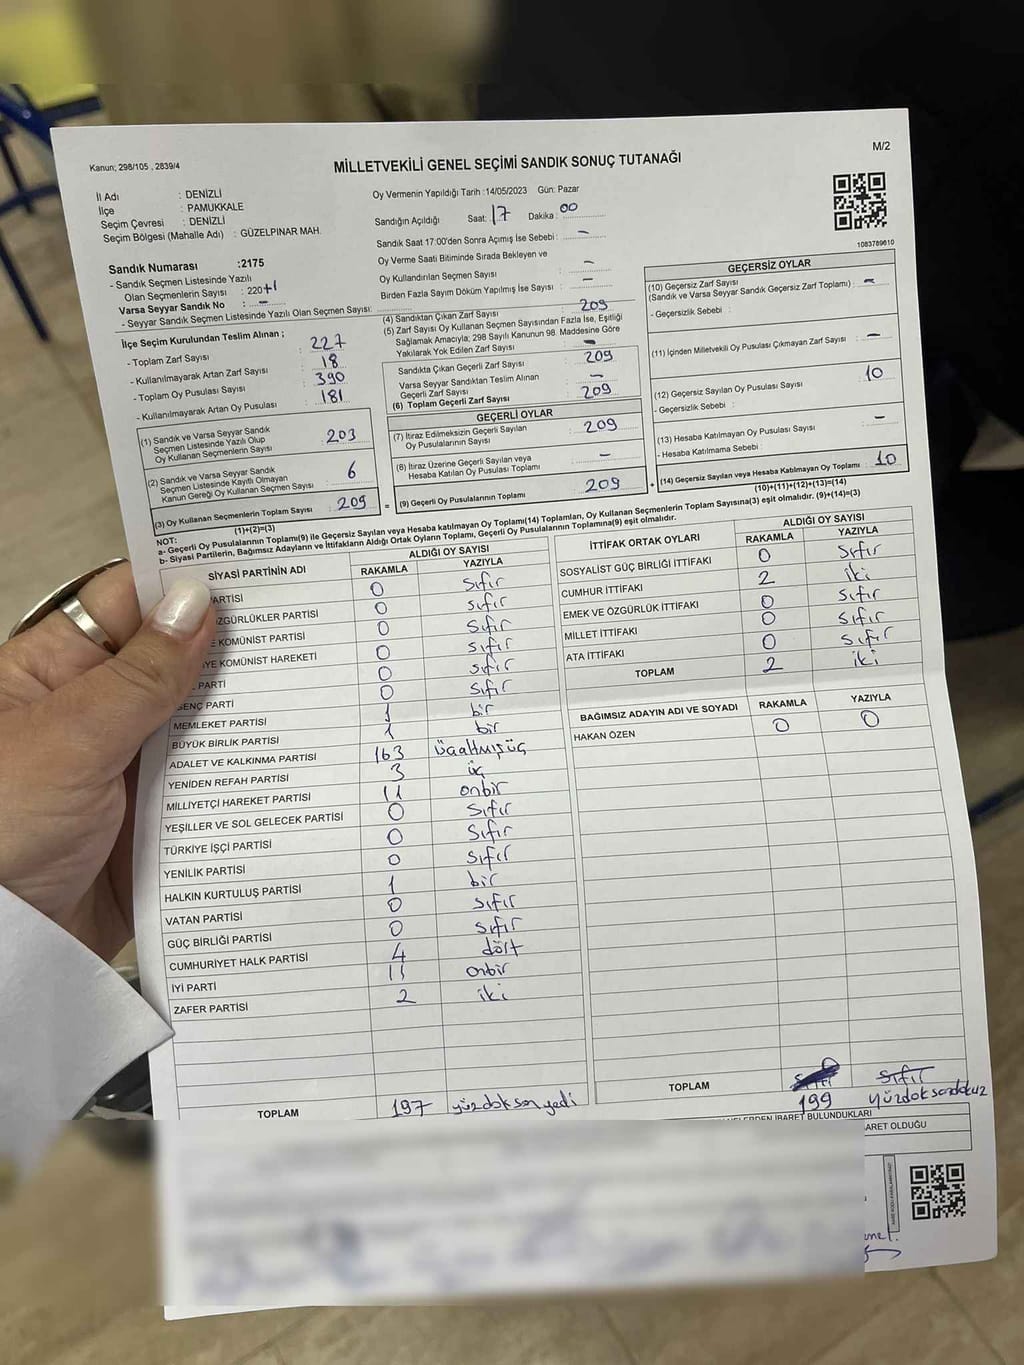 Kanun; 298/105 , 2839/4
MİLLETVEKİLİ GENEL SEÇİMİ SANDIK SONUÇ TUTANAĞI
M/2
İl Adı : DENİZLİ
İlçe : PAMUKKALE
Seçim Çevresi : DENİZLİ
Seçim Bölgesi (Mahalle Adı) : GÜZELPINAR MAH.
Oy Vermenin Yapıldığı Tarih :14/05/2023 Gün: Pazar
Sandığın Açıldığı Saat: 17 Dakika : 00
Sandık Saat 17:00'den Sonra Açımış İse Sebebi : -
Oy Verme Saati Bitiminde Sırada Bekleyen ve
Oy Kullandırılan Seçmen Sayısı : -
Birden Fazla Sayım Döküm Yapılmış İse Sayısı : -
1083789610
Sandık Numarası :2175
- Sandık Seçmen Listesinde Yazılı
Olan Seçmenlerin Sayısı : 220+1
Varsa Seyyar Sandık No : -
- Seyyar Sandık Seçmen Listesinde Yazılı Olan Seçmen Sayısı:
İlçe Seçim Kurulundan Teslim Alınan ;
- Toplam Zarf Sayısı : 227
- Kullanılmayarak Artan Zarf Sayısı : 18
- Toplam Oy Pusulası Sayısı : 390
- Kullanılmayarak Artan Oy Pusulası : 181
(1) Sandık ve Varsa Seyyar Sandık
Seçmen Listesinde Yazılı Olup
Oy Kullanan Seçmenlerin Sayısı : 203
(2) Sandık ve Varsa Seyyar Sandık
Seçmen Listesinde Kayıtlı Olmayan
Kanun Gereği Oy Kullanan Seçmen Sayısı : 6
(3) Oy Kullanan Seçmenlerin Toplam Sayısı : 209
(1)+(2)=(3)
(4) Sandıktan Çıkan Zarf Sayısı : 209
(5) Zarf Sayısı Oy Kullanan Seçmen Sayısından Fazla İse, Eşitliği
Sağlamak Amacıyla; 298 Sayılı Kanunun 98. Maddesine Göre
Yakılarak Yok Edilen Zarf Sayısı : -
Sandıkta Çıkan Geçerli Zarf Sayısı : 209
Varsa Seyyar Sandıktan Teslim Alınan
Geçerli Zarf Sayısı : -
(6) Toplam Geçerli Zarf Sayısı : 209
GEÇERLİ OYLAR
(7) İtiraz Edilmeksizin Geçerli Sayılan
Oy Pusulalarının Sayısı : 209
(8) İtiraz Üzerine Geçerli Sayılan veya
Hesaba Katılan Oy Pusulası Toplamı : -
= (9) Geçerli Oy Pusulalarının Toplamı : 209
GEÇERSİZ OYLAR
(10) Geçersiz Zarf Sayısı
(Sandık ve Varsa Seyyar Sandık Geçersiz Zarf Toplamı) : -
- Geçersizlik Sebebi :
(11) İçinden Milletvekili Oy Pusulası Çıkmayan Zarf Sayısı : -
(12) Geçersiz Sayılan Oy Pusulası Sayısı : 10
- Geçersizlik Sebebi :
(13) Hesaba Katılmayan Oy Pusulası Sayısı : -
- Hesaba Katılmama Sebebi :
+ (14) Geçersiz Sayılan veya Hesaba Katılmayan Oy Toplamı : 10
(10)+(11)+(12)+(13)=(14)
NOT:
a- Geçerli Oy Pusulalarının Toplamı(9) ile Geçersiz Sayılan veya Hesaba katılmayan Oy Toplamı(14) Toplamları, Oy Kullanan Seçmenlerin Toplam Sayısına(3) eşit olmalıdır. (9)+(14)=(3)
b- Siyasi Partilerin, Bağımsız Adayların ve İttifakların Aldığı Ortak Oyların Toplamı, Geçerli Oy Pusulalarının Toplamına(9) eşit olmalıdır.
SİYASİ PARTİNİN ADI ALDIĞI OY SAYISI
RAKAMLA YAZIYLA
PARTİSİ 0 sıfır
ÖZGÜRLÜKLER PARTİSİ 0 sıfır
KOMÜNİST PARTİSİ 0 sıfır
KOMÜNİST HAREKETİ 0 sıfır
PARTİ 0 sıfır
GENÇ PARTİ 0 sıfır
MEMLEKET PARTİSİ 1 bir
BÜYÜK BİRLİK PARTİSİ 1 bir
ADALET VE KALKINMA PARTİSİ 163
YENİDEN REFAH PARTİSİ 3 üç
MİLLİYETÇİ HAREKET PARTİSİ 11 onbir
YEŞİLLER VE SOL GELECEK PARTİSİ 0 sıfır
TÜRKİYE İŞÇİ PARTİSİ 0 sıfır
YENİLİK PARTİSİ 0 sıfır
HALKIN KURTULUŞ PARTİSİ 1 bir
VATAN PARTİSİ 0 sıfır
GÜÇ BİRLİĞİ PARTİSİ 0 sıfır
CUMHURİYET HALK PARTİSİ 4 dört
İYİ PARTİ 11 onbir
ZAFER PARTİSİ 2 iki
TOPLAM 197 yüzdoksan yedi
İTTİFAK ORTAK OYLARI ALDIĞI OY SAYISI
RAKAMLA YAZIYLA
SOSYALİST GÜÇ BİRLİĞİ İTTİFAKI 0 sıfır
CUMHUR İTTİFAKI 2 iki
EMEK VE ÖZGÜRLÜK İTTİFAKI 0 sıfır
MİLLET İTTİFAKI 0 sıfır
ATA İTTİFAKI 0 sıfır
TOPLAM 2 iki
BAĞIMSIZ ADAYIN ADI VE SOYADI RAKAMLA YAZIYLA
HAKAN ÖZEN 0 0
TOPLAM sıfır
199 yüzdoksandokuz
İBARET BULUNDUKLARI
OLDUĞU